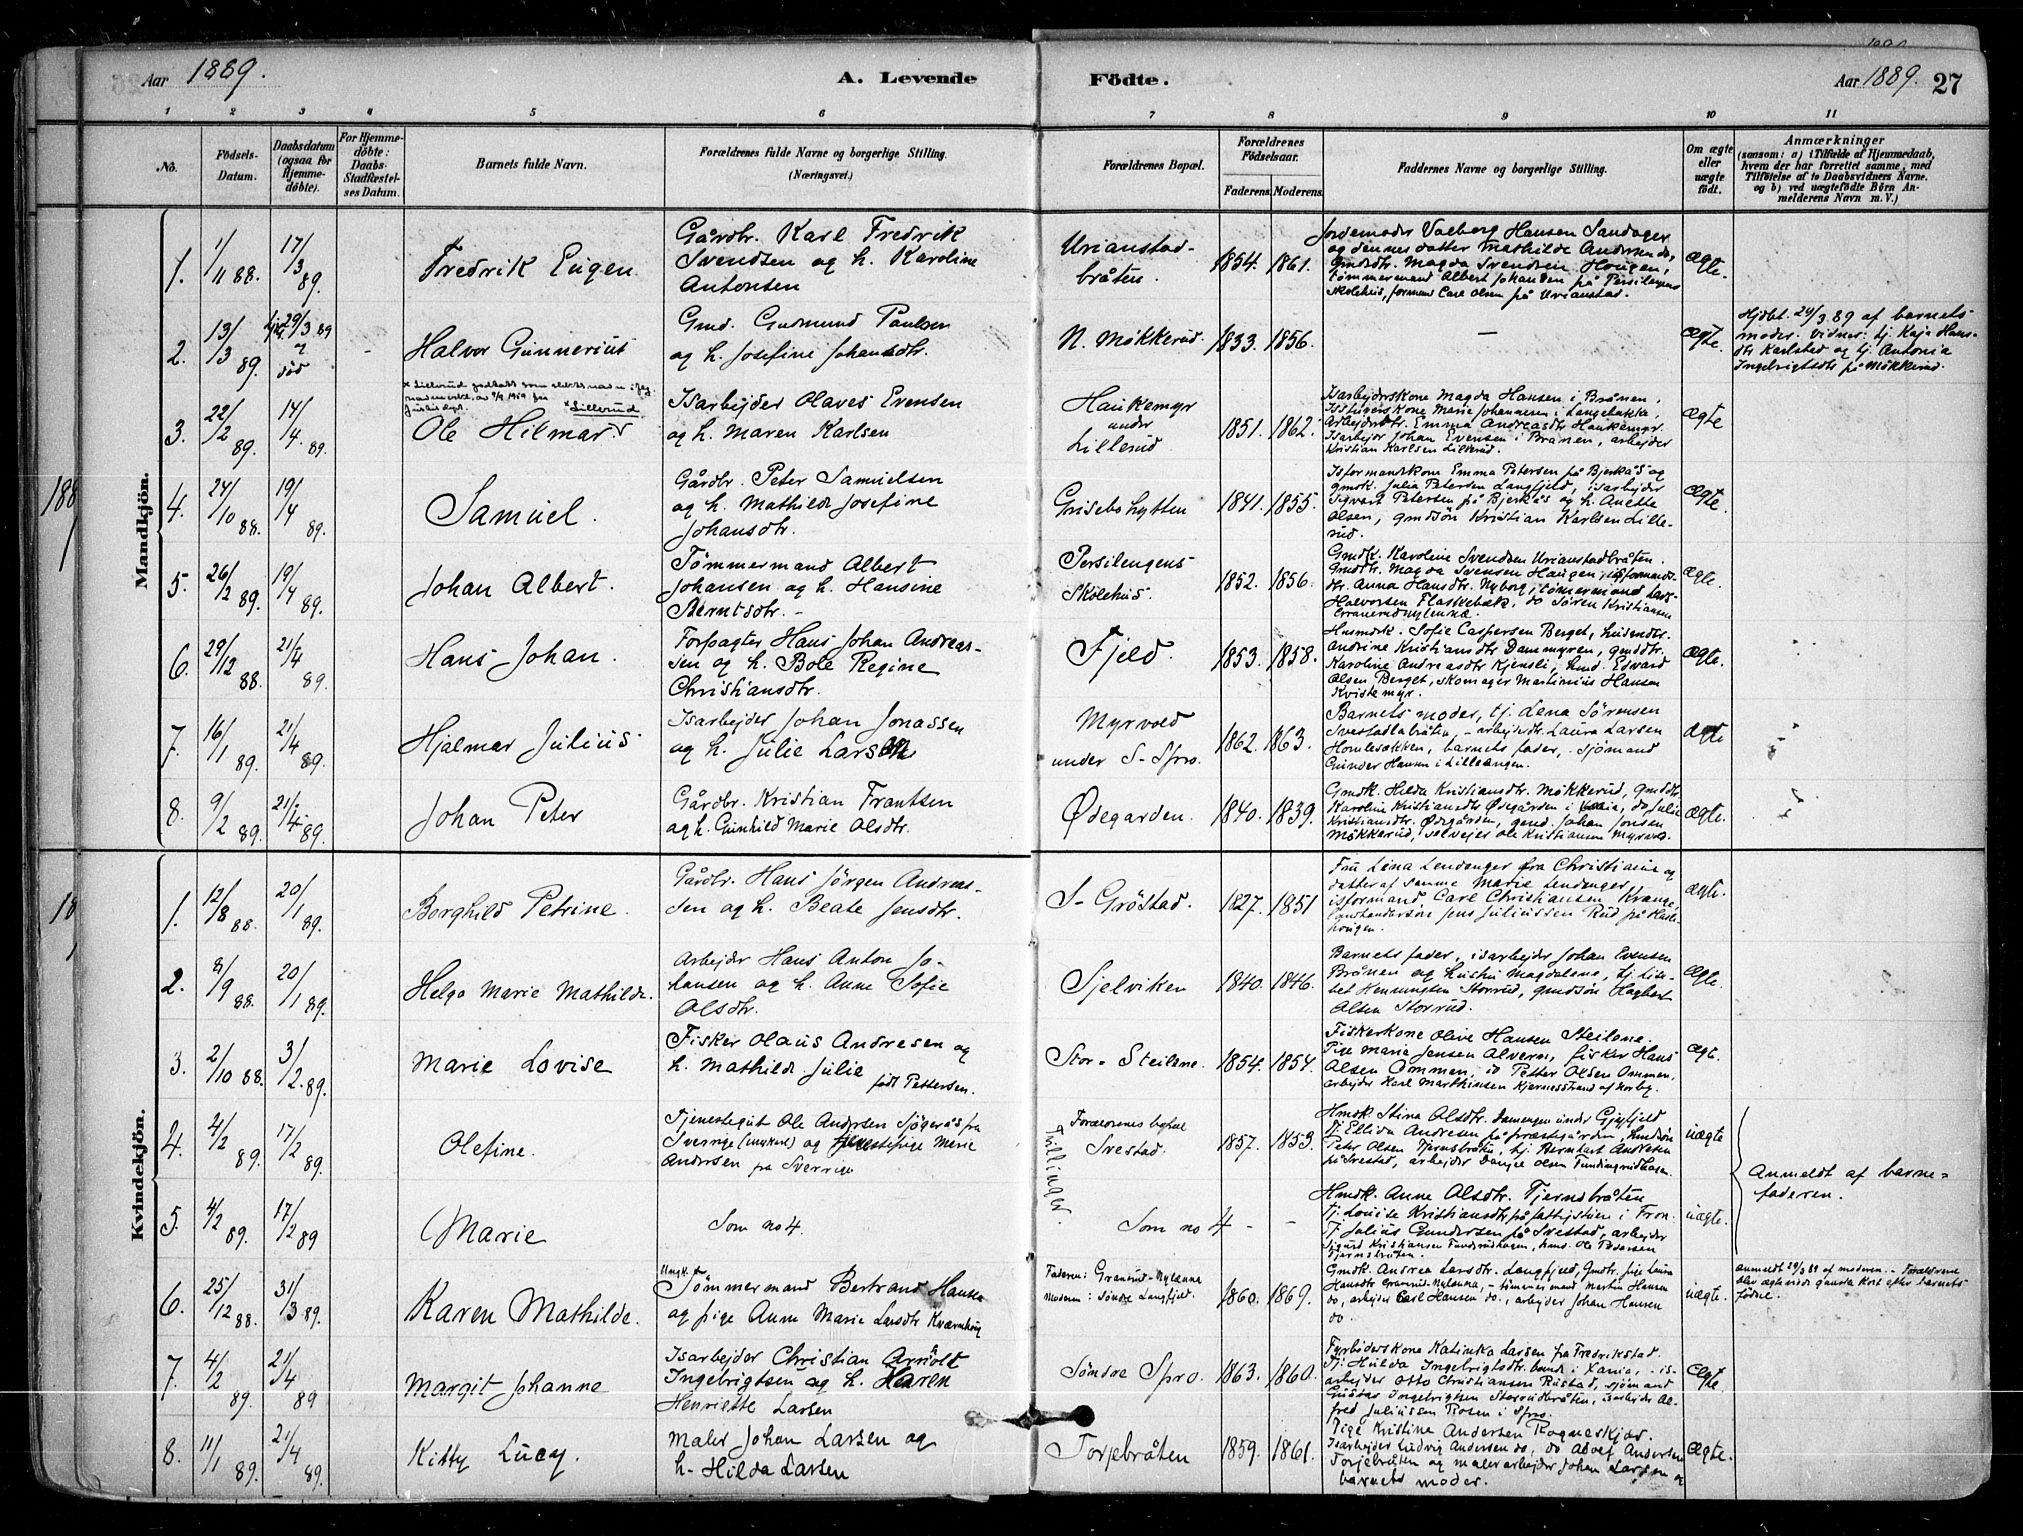 Aar 1889.
A. Levende
Födte.
Aar 1889. 27
1 2 3 4 5 6 7 8 9 10 11
No.
Födsels-Datum.
Daabsdatum (ogsaa for Hjemme-döbte).
For Hjemme-döbte: Daabs-Stadfæstel-ses Datum.
Barnets fulde Navn.
Forældrenes fulde Navne og borgerlige Stilling.
(Næringsvei.)
Forældrenes Bopæl.
Forældrenes Födselsaar.
Faderens. Moderens.
Faddernes Navne og borgerlige Stilling.
Om ægte eller uægte födt.
Anmærkninger
(sansom: a) i Tilfælde af Hjemmedaab, hvem der har forrettet samme, med Tilföielse af to Daabsvidners Navne. og b) ved uægtefödte Börn An-melderens Navn m.V.)
Mandkjön.
1. 1/11 88. 17/3 89. Fredrik Eugen
Gårdbr. Karl Fredrik
Svendsen og h. Karoline
Antonsen
Urianstad-
bråten.
1854. 1861.
Jordemoder Valborg Hansen Sandager
og dennes datter Mathilde Andersen do,
Gmdstr. Magda Svendsen Hougen,
tømmermand Albert Johansen på Persilengens
Skolehus, formand Carl Olsen på Urianstad.
Ægte.
2. 13/3 89. 29/3 89 og død - Halvor Gunnerius
Gmd. Gudmund Paulsen
og h. Josefine Johansdtr.
N. Møkkerud.
1833. 1856. - Ægte.
Hjdbt. 29/3 89 af barnets
moder. Vidner: tj. Kaja Hans-
dtr Karlstad og tj. Antonia
Ingebrigtsdtr på Møkkerud.
3. 22/2 89. 14/4 89. Ole Hilmar
× Lillerud
Isarbejder Olaves Evensen
og h. Maren Karlsen
Haukemyr
under
Lillerud
1851. 1862.
Isarbejderskone Magda Hansen i Brånen,
Marie Johannesen i Langebakke,
Arbejderdtr. Emma Andreasdtr Haukemyr.
Isarbejer Johan Evensen i Brånen, arbejder
Kristian Karlsen Lillerud.
Ægte
4. 24/10 88. 19/4 89. Samuel.
Gårdbr. Peter Samuelsen
og h. Mathilde Josefine
Johansdtr.
Grisebohytten
1841. 1855.
Isformandskone Emma Petersen på Bjerkås og
gmdk. Julia Petersen Langfjeld, isarbejder
Sigvart Petersen på Bjerkås og h. Anette
Olsen, gmdsön Kristian Karlsen Lille-
rud.
Ægte.
5. 26/2 89. 19/4 89. Johan Albert.
Tömmermand Albert
Johansen og h. Hansine
Berntsdtr. -
Persilengens
Skolehus.
1852. 1856.
Gmdk. Karoline Svendsen Urianstadbråten.
Gmdstr. Magda Svensen Haugen, isformands-
dtr. Anna Hansdtr. Nyborg, tömmermand Lars
Halvorsen Flaskebæk, do Sören Kristiansen
Ægte.
6. 29/12 88. 21/4 89. Hans Johan.
Forpagter Hans Johan Andreas-
sen og h. Bole Regine
Christiansdtr.
Fjeld.
1853. 1858.
Husmdk. Sofie Caspersen Berget, husmdtr.
Andrine Kristiansdtr Dammyren, gmddtr.
Karoline Andreasdtr Kjensli, hmd. Edvard
Olsen Berget, skomager Martinius Hansen
Kvistemyr.
Ægte.
7. 16/1 89. 21/4 89. Hjalmar Julius
Isarbejder Johan Jonassen
og h. Julie Larsen
Myrvold
under S- Spro.
1862. 1863.
Barnets moder, tj. Lena Sörensen
Svestadlabråten, - arbejdstr. Laura Larsen
Homlesekken, barnets fader, - sjömand
Gunder Hansen i Lilleengen.
Ægte
8. 9/2 89. 21/4 89. Johan Peter
Gårdbr. Kristian Frantsen
og h. Gunhild Marie Olsdtr.
Ødegarden.
1840. 1839.
Gmdk. Hilda Kristiansdtr. Møkkerud, gmddtr.
Karoline Kristiansdtr Ødegården, do Julie
Kristiansdtr. Ødegården, gmd. Johan Jonsen
Møkkerud, selvejer Ole Kristiansen Myrvold.
Ægte.
Kvindekjön.
1. 12/8 88. 20/1 89. Borghild Petrine.
Gårdbr. Hans Jörgen Andreas-
sen og h. Beate Jensdtr.
S- Gröstad.
1827. 1851
Fru Lena Lendenger fra Christiania og
datter af samme Marie Lendenger,
isformand Carl Christiansen Krange,
Jens Juliussen Rud på Hasle-
hougen.
Ægte.
2. 8/9 88. 20/1 89. Helga Marie Mathilde.
Arbejder Hans Anton Jo-
hansen og h. Anne Sofie
Olsdtr.
Sjelviken
1840. 1846.
Barnets fader, isarbejder Johan Evensen
Brånen og hustru Magdalene, tj. Lise-
bet Henningsen Storrud, gmdsön Hagbart
Olsen Storrud.
Ægte.
3. 2/10 88. 3/2 89. Marie Lovise
Fisker Olaus Andresen og
h. Mathilde Julie
født Pettersen.
Stor- Steilene
1854. 1854.
Fiskerkone Olive Hansen Steilene.
Pige Maria Jensen Alvern, fisker Hans
Olsen Ommen, do Petter Olsen Ommen,
arbejder Karl Marthinsen Kjernesstrand af Horby.
Ægt.
4. 4/2 89. 17/2 89. Olefine.
Tjenestegut Ole Andersen Sjögerås fra
Sverrige (Ungkarl) og tjenestepige Marie
Andersen fra Sverrige
Forældrenes bopæl
Svestad.
Tvillinger.
1857. 1853
Hmdk. Stina Olsdtr. Damengen under Gjøfjeld
Tj. Ellida Andresen på præstegården, hmdsön
Peter Olsen Tjernsbråten, tj. Bernhart Andresen
på Svestad, arbejder Olsen Fundingrudhagen.
uægte
Anmeldt af barne-
faderen.
5. 4/2 89. 17/2 89 Marie
Som no 4.
Som no 4 - -
Hmdk. Anne Olsdtr. Tjernsbråten
Tj. Louise Kristiansdtr på fattigstuen i Fron
Tj. Julius Gundersen på Svestad, arbejder
Sigurd Kristiansen Fundrudhagen, hmd. Ole Pedersen
Tjernsbråten.
uægte.
6. 25/12 88. 31/3 89. Karen Mathilde.
Ungk. Tömmermand Bertrand Hansen
og pige Anne Marie Larsdtr Kværnhøy
Faderen: Granerud-Nylænna
Moderen: Söndre Langfjeld.
1860. 1869.
Gmdk. Andrea Larsdtr. Langfjeld, Gmdtr. pige Laura
Hansdtr Granerud-Nylænna, - tömmermand Martin Hansen
do, arbejder Carl Hansen do., arbejder Johan Hansen
do.
uægte.
anmeldt 29/3 89 af moderen. - Forældrene
blev ægteviede ganske kort efter barnets
födne.
7. 4/2 89. 21/4 89 Margit Johanne
Isarbejder Christian Arnolt
Ingebrigtsen og h. Karen
Henriette Larsen
Söndre Spro.
1863. 1860.
Fyrbøderskone Katinka Larsen fra Fredrikstad.
Tj. Hulda Ingebrigtsdtr. bunde i Xania, - is-
arbejder Otto Christiansen Rustad, sjömand
Gustav Ingebrigtsen Storrudbråten, isarbejder Al-
fred Juliussen Rosen i Spro.
Ægte
8. 11/1 89. 21/4 89. Kitty Lucy.
Maler Johan Larsen og
h. Hilda Larsen
Torjebråten
1859. 1861.
Pige Kristine Andersen Rogneskjær.
Isarbejder Ludvig Andersen do, do Adolf Andersen
Torjebråten og malerarbejder Johan Larsen og
barnets moder.
Ægte.